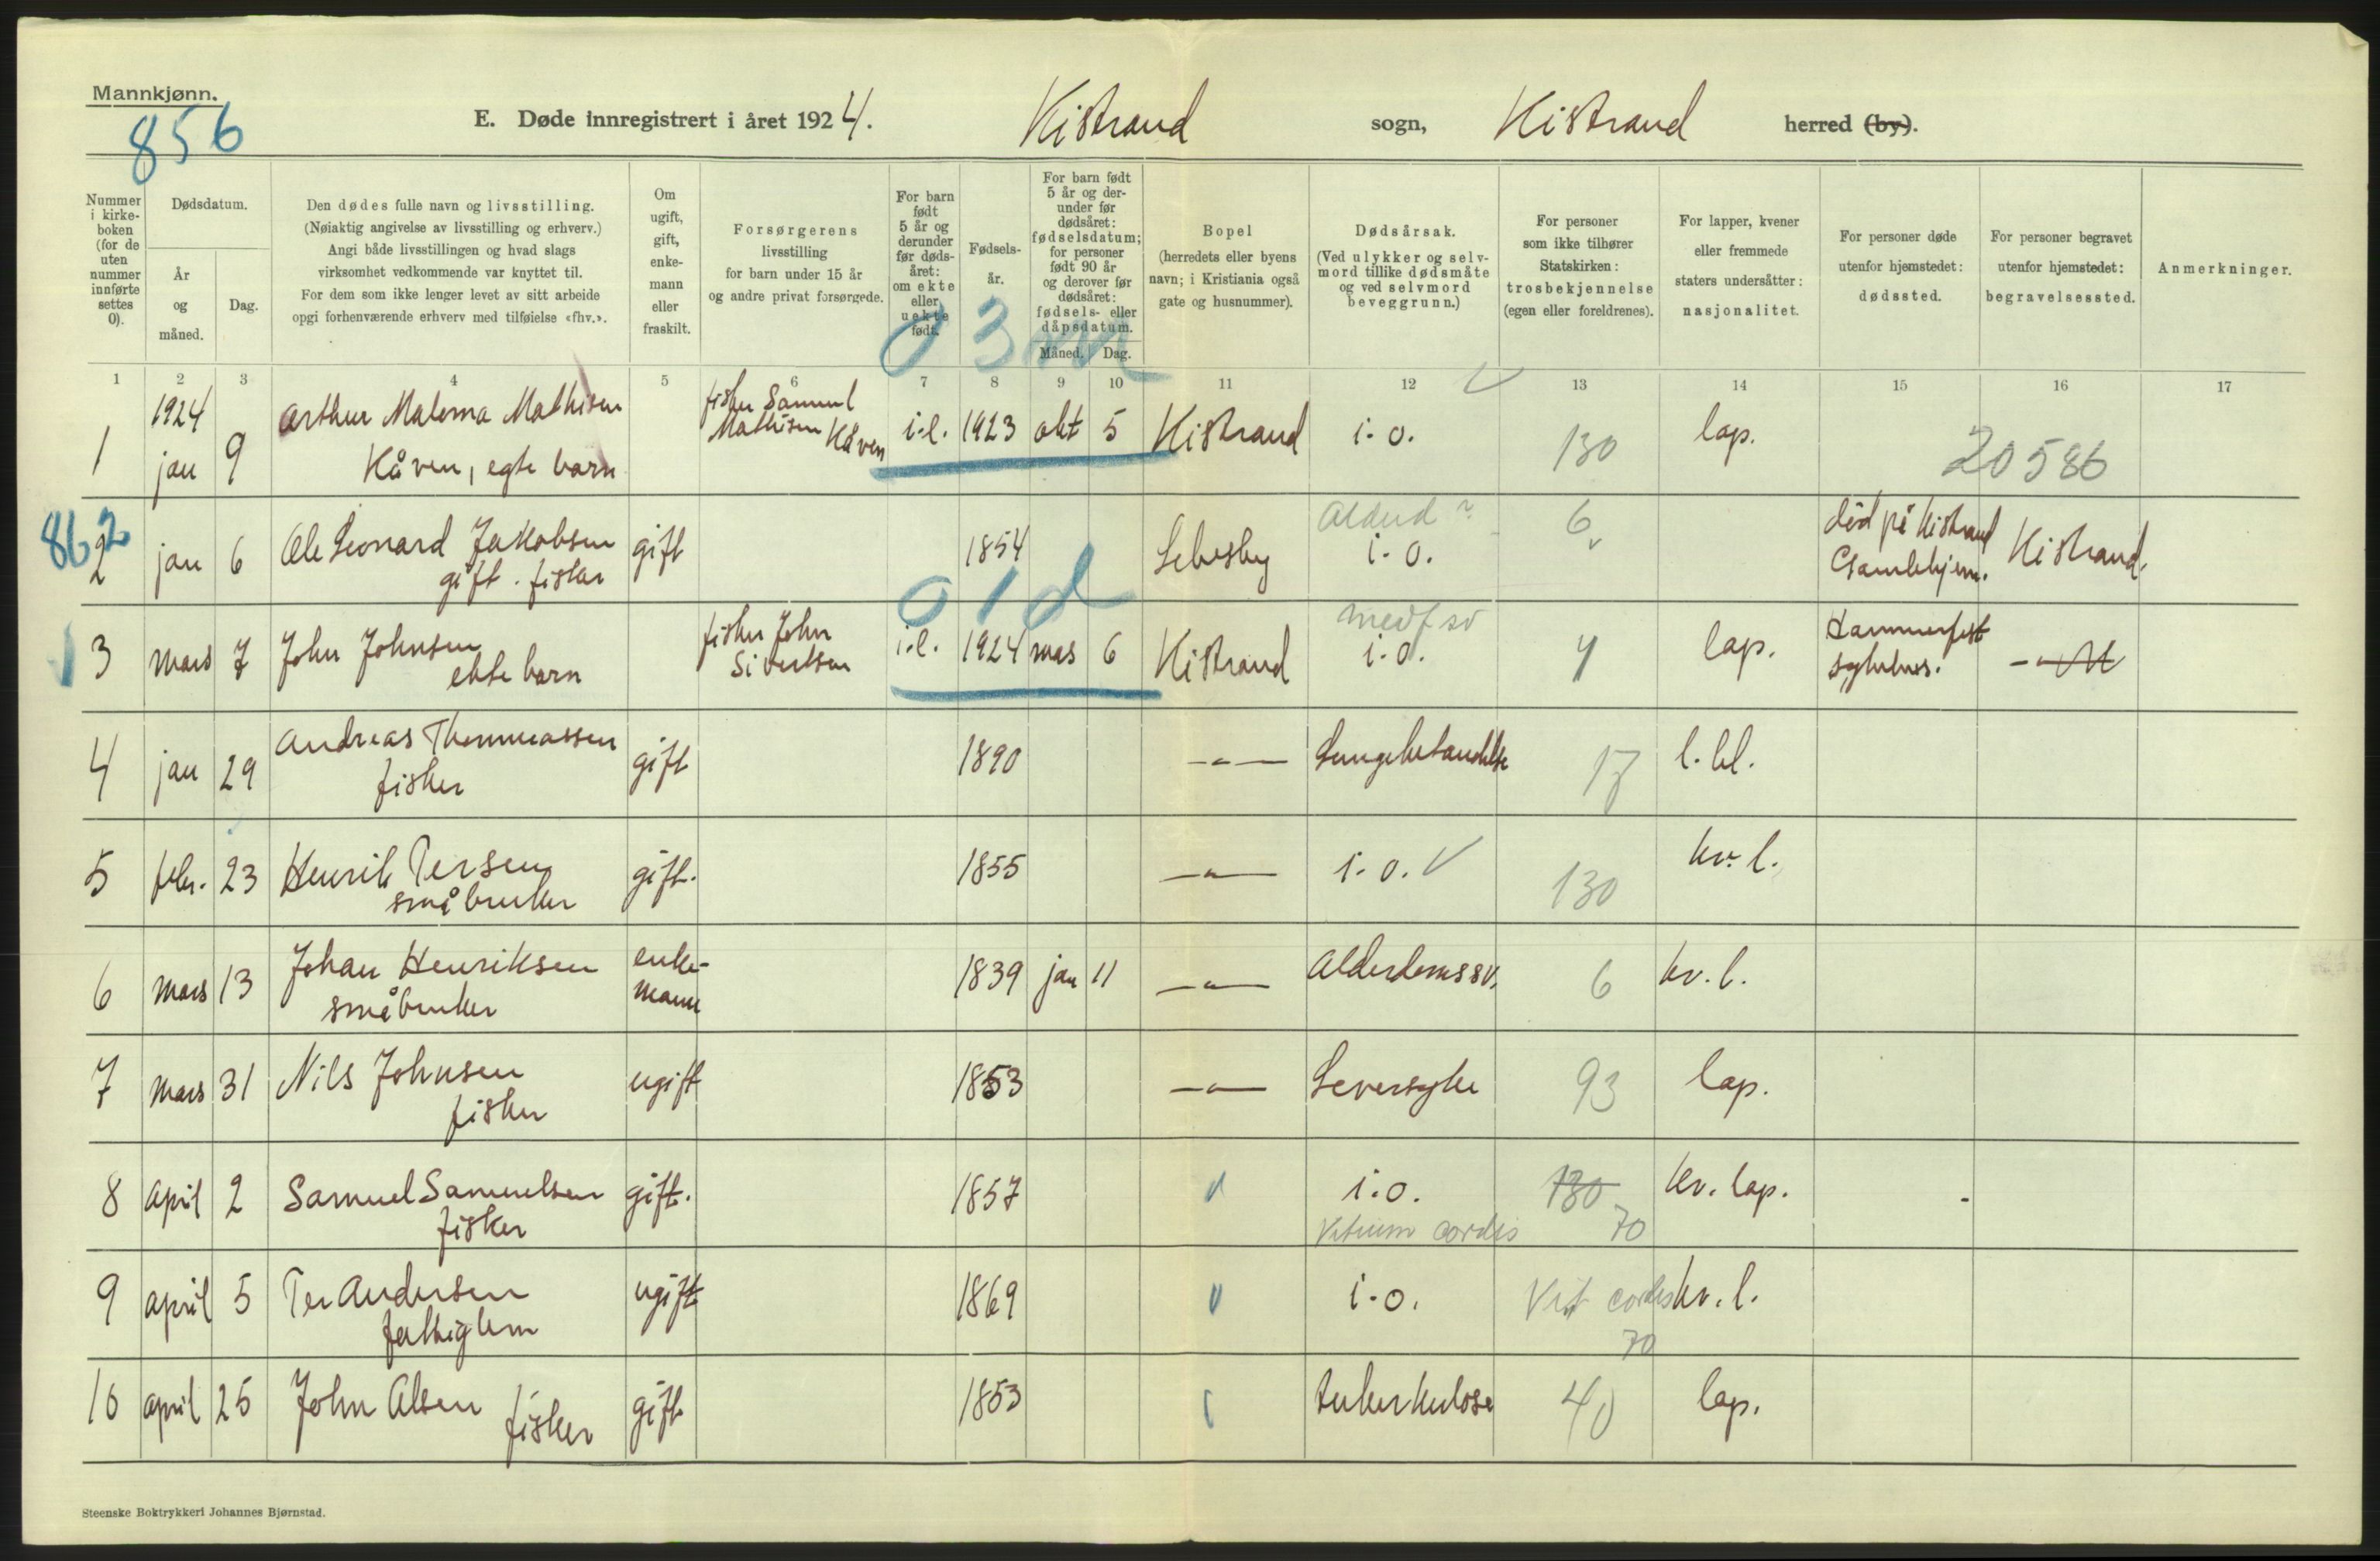 Mannkjønn.
856
E. Døde innregistrert i året 1924. Kistrand sogn, Kistrand herred (by).
Nummer i kirke-boken (for de uten nummer innførte settes 0).
Dødsdatum.
År og måned.
Dag.
Den dødes fulle navn og livsstilling.
(Nøiaktig angivelse av livsstilling og erhverv.)
Angi både livsstillingen og hvad slags
virksomhet vedkommende var knyttet til.
For dem som ikke lenger levet av sitt arbeide
opgi forhenværende erhverv med tilføielse «fhv.».
Om ugift, gift, enke-mann eller fraskilt.
Forsørgerens
livsstilling
for barn under 15 år
og andre privat forsørgede.
For barn født 5 år og derunder før døds-året: om ekte eller uekte født.
Fødsels-år.
For barn født 5 år og der-under før dødsåret: fødselsdatum; for personer født 90 år og derover før dødsåret: fødsels- eller dåpsdatum.
Måned. Dag.
Bopel
(herredets eller byens
navn; i Kristiania også
gate og husnummer).
Dødsårsak.
(Ved ulykker og selv-
mord tillike dødsmåte
og ved selvmord
beveggrunn.)
For personer
som ikke tilhører
Statskirken:
trosbekjennelse
(egen eller foreldrenes).
For lapper, kvener
eller fremmede
staters undersåtter:
nasjonalitet.
For personer døde
utenfor hjemstedet:
dødssted.
For personer begravet
utenfor hjemstedet:
begravelsessted.
Anmerkninger.
0 3 m
1 2 3 4 5 6 7 8 9 10 11 12 13 14 15 16 17
1 1924 jan 9 Arthur Malema Mathisen Kåven, egte barn fisker Samuel Mathisen Kåven i.l. 1923 okt 5 Kistrand i. o. 130 lap. 20586
862
2 jan 6 Ole Leonard Jakobsen gift. fisker gift 1854 Lebesby i. o. 6 død på Kistrand Gamlehjem. Kistrand.
0 1 d
3 mars 7 John Johnsen ekte barn fisker John Sivertsen i.l. 1924 mars 6 Kistrand medf sv i.o. 4 lap. Hammerfest sykehus. -"-
4 jan 29 Andreas Thommassen fisker gift 1890 -"- Lungebetendelse 17 l. bl.
5 febr. 23 Henrik Persen småbruker gift. 1855 -"- i. o. 130 kv. l.
6 mars 13 Johan Henriksen småbruker enke-mann 1839 jan 11 -"- Alderdomssv. 6 kv. l.
7 mars 31 Nils Johnsen fisker ugift 1853 -"- Leversyke 93 lap.
8 april 2 Samuel Samuelsen fisker gift. 1857 " i.o. Vitium cordis 130 70 kv. lap.
9 april 5 Per Andersen fattiglem ugift 1869 " i.o. Vit cordis 70 kv. l.
10 april 25 John Olsen fisker gift 1853 tuberkulose 40 lap.
Steenske Boktrykkeri Johannes Bjørnstad.